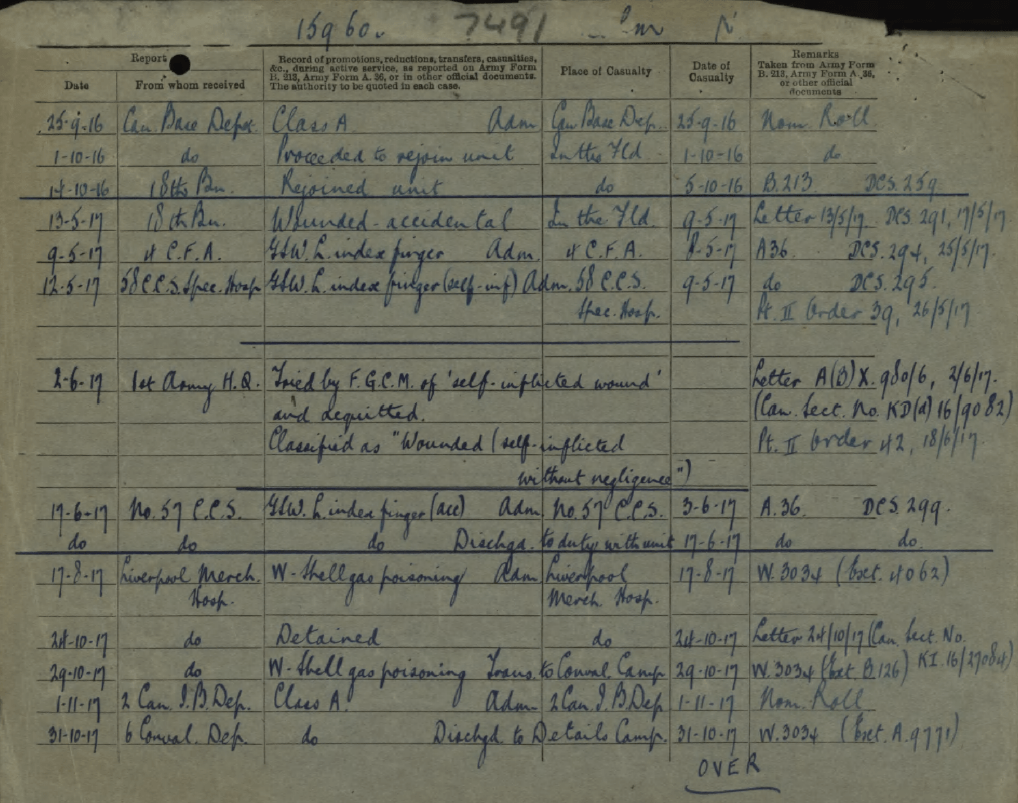 159 60. 7491
Report
Date
From whom received
Record of promotions, reductions, transfers, casualties,
&c., during active service, as reported on Army Form
B. 213, Army Form A. 36, or in other official documents.
The authority to be quoted in each case.
Place of Casualty
Date of
Casualty
Remarks
Taken from Army Form
B. 213, Army Form A. 36,
or other official
documents
25-9-16 Can Base Depot Class A Adm Can Base Dep. 25-9-16 Nom. Roll
1-10-16 do Proceeded to rejoin unit In the Fld 1-10-16 do
14-10-16 18th Bn. Rejoined unit do 5-10-16 B.213. DCS.259
13-5-17 18th Bn. Wounded-accidental In the Fld 9-5-17 Letter 13/5/17. DCS.291, 17/5/17.
9-5-17 4 C.F.A. GSW. L. index finger Adm. 4 C.F.A. 8-5-17 A36. DCS.294, 25/5/17.
12-5-17 58 C.C.S. Spec. Hosp GSW. L. index finger (self-inf) Adm. 58 C.C.S. 9-5-17 do DCS.295.
Spec. Hosp. Pt. II Order 39, 26/5/17.
2-6-17 1st Army H.Q. Tried by F.G.C.M. of 'self-inflicted wound' Letter A(B)X. 980/6, 2/6/17.
and acquitted. (Can. Sect. No. KD(d) 16/9082)
Classified as "Wounded (self-inflicted Pt. II Order 42, 18/6/17.
without negligence")
17-6-17 No. 57 C.C.S. GSW. L. index finger (acc) Adm No. 57 C.C.S. 3-6-17 A.36. DCS.299.
do do do Dischgd. to duty with unit 17-6-17 do do.
17-8-17 Liverpool Merch. W-Shell gas poisoning Adm Liverpool 17-8-17 W.3034 (Ext. 4062)
Hosp. Merch. Hosp.
24-10-17 do Detained do 24-10-17 Letter 24/10/17 (Can. Sect. No.
KI. 16/27084)
29-10-17 do W-Shell gas poisoning Trans. to Conval. Camp 29-10-17 W.3034 (Ext. B.126)
1-11-17 2 Can. I.B. Dep. Class A. Adm 2 Can. I.B. Dep 1-11-17 Nom. Roll
31-10-17 6 Conval. Dep. do Dischgd to Details Camp. 31-10-17 W.3034 (Ext. A.9771)
OVER